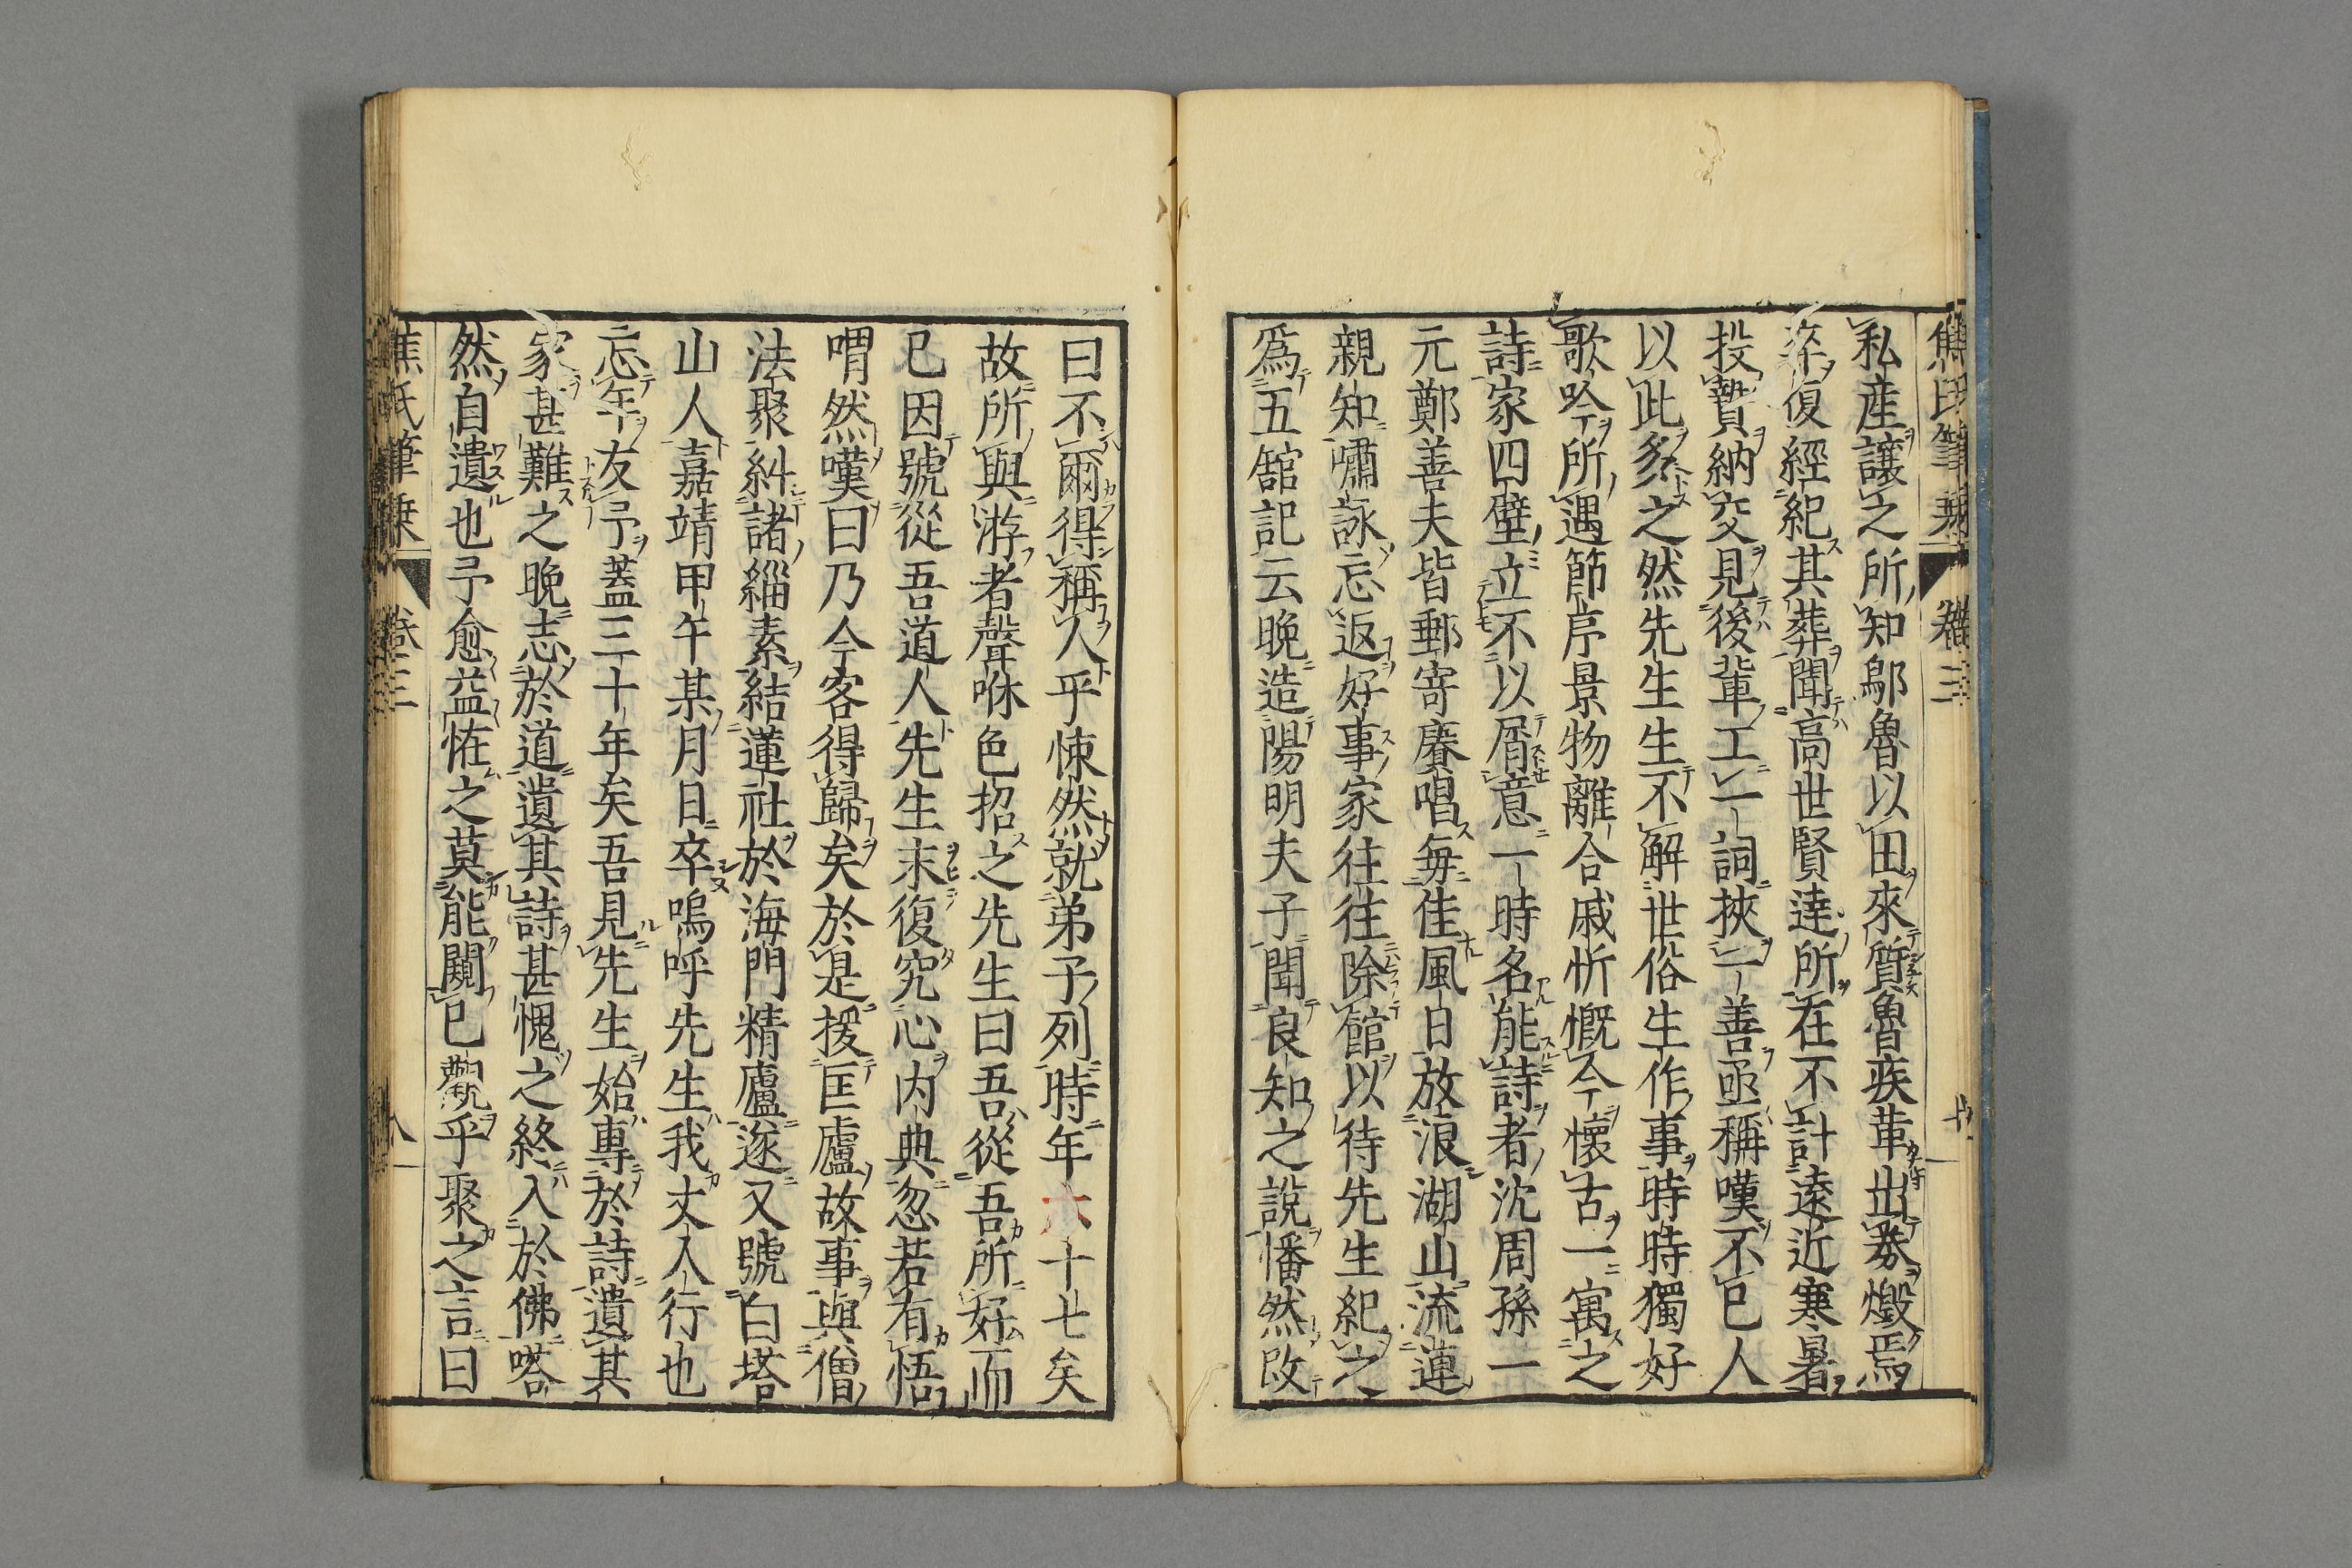 私産讓之所知鄔魯以田來質魯疾革出券燬焉
卒復經紀其葬聞高世賢達所在不計遠近寒暑
投贄納交見後輩工一詞挾一善亟稱嘆不已人
以此多之然先生生不解世俗生作事時時獨好
歌吟所遇節序景物離合戚忻慨今懷古一寓之
詩家四壁立不以屑意一時名能詩者沈周孫一
元鄭善夫皆郵寄賡唱每佳風日放浪湖山流連
親知嘯詠忘返好事家往往除館以待先生紀之
爲五舘記云晩造陽明夫子聞良知之說幡然改
曰不爾得稱人乎悚然就弟子列時年六十七矣
故所與游者聲咻色招之先生曰吾從吾所好而
已因號從吾道人先生末復究心内典忽若有悟
喟然嘆曰乃今客得歸矣於是援匡廬故事與僧
法聚糾諸緇素結蓮社於海門精廬遂又號白塔
山人嘉靖甲午某月日卒嗚呼先生我丈人行也
忘年友予蓋三十年矣吾見先生始專於詩遺其
家甚難之晩志於道遺其詩甚愧之終入於佛嗒
然自遺也予愈益恠之莫能闚已觀乎聚之言曰
焦氏筆乗 卷三 八